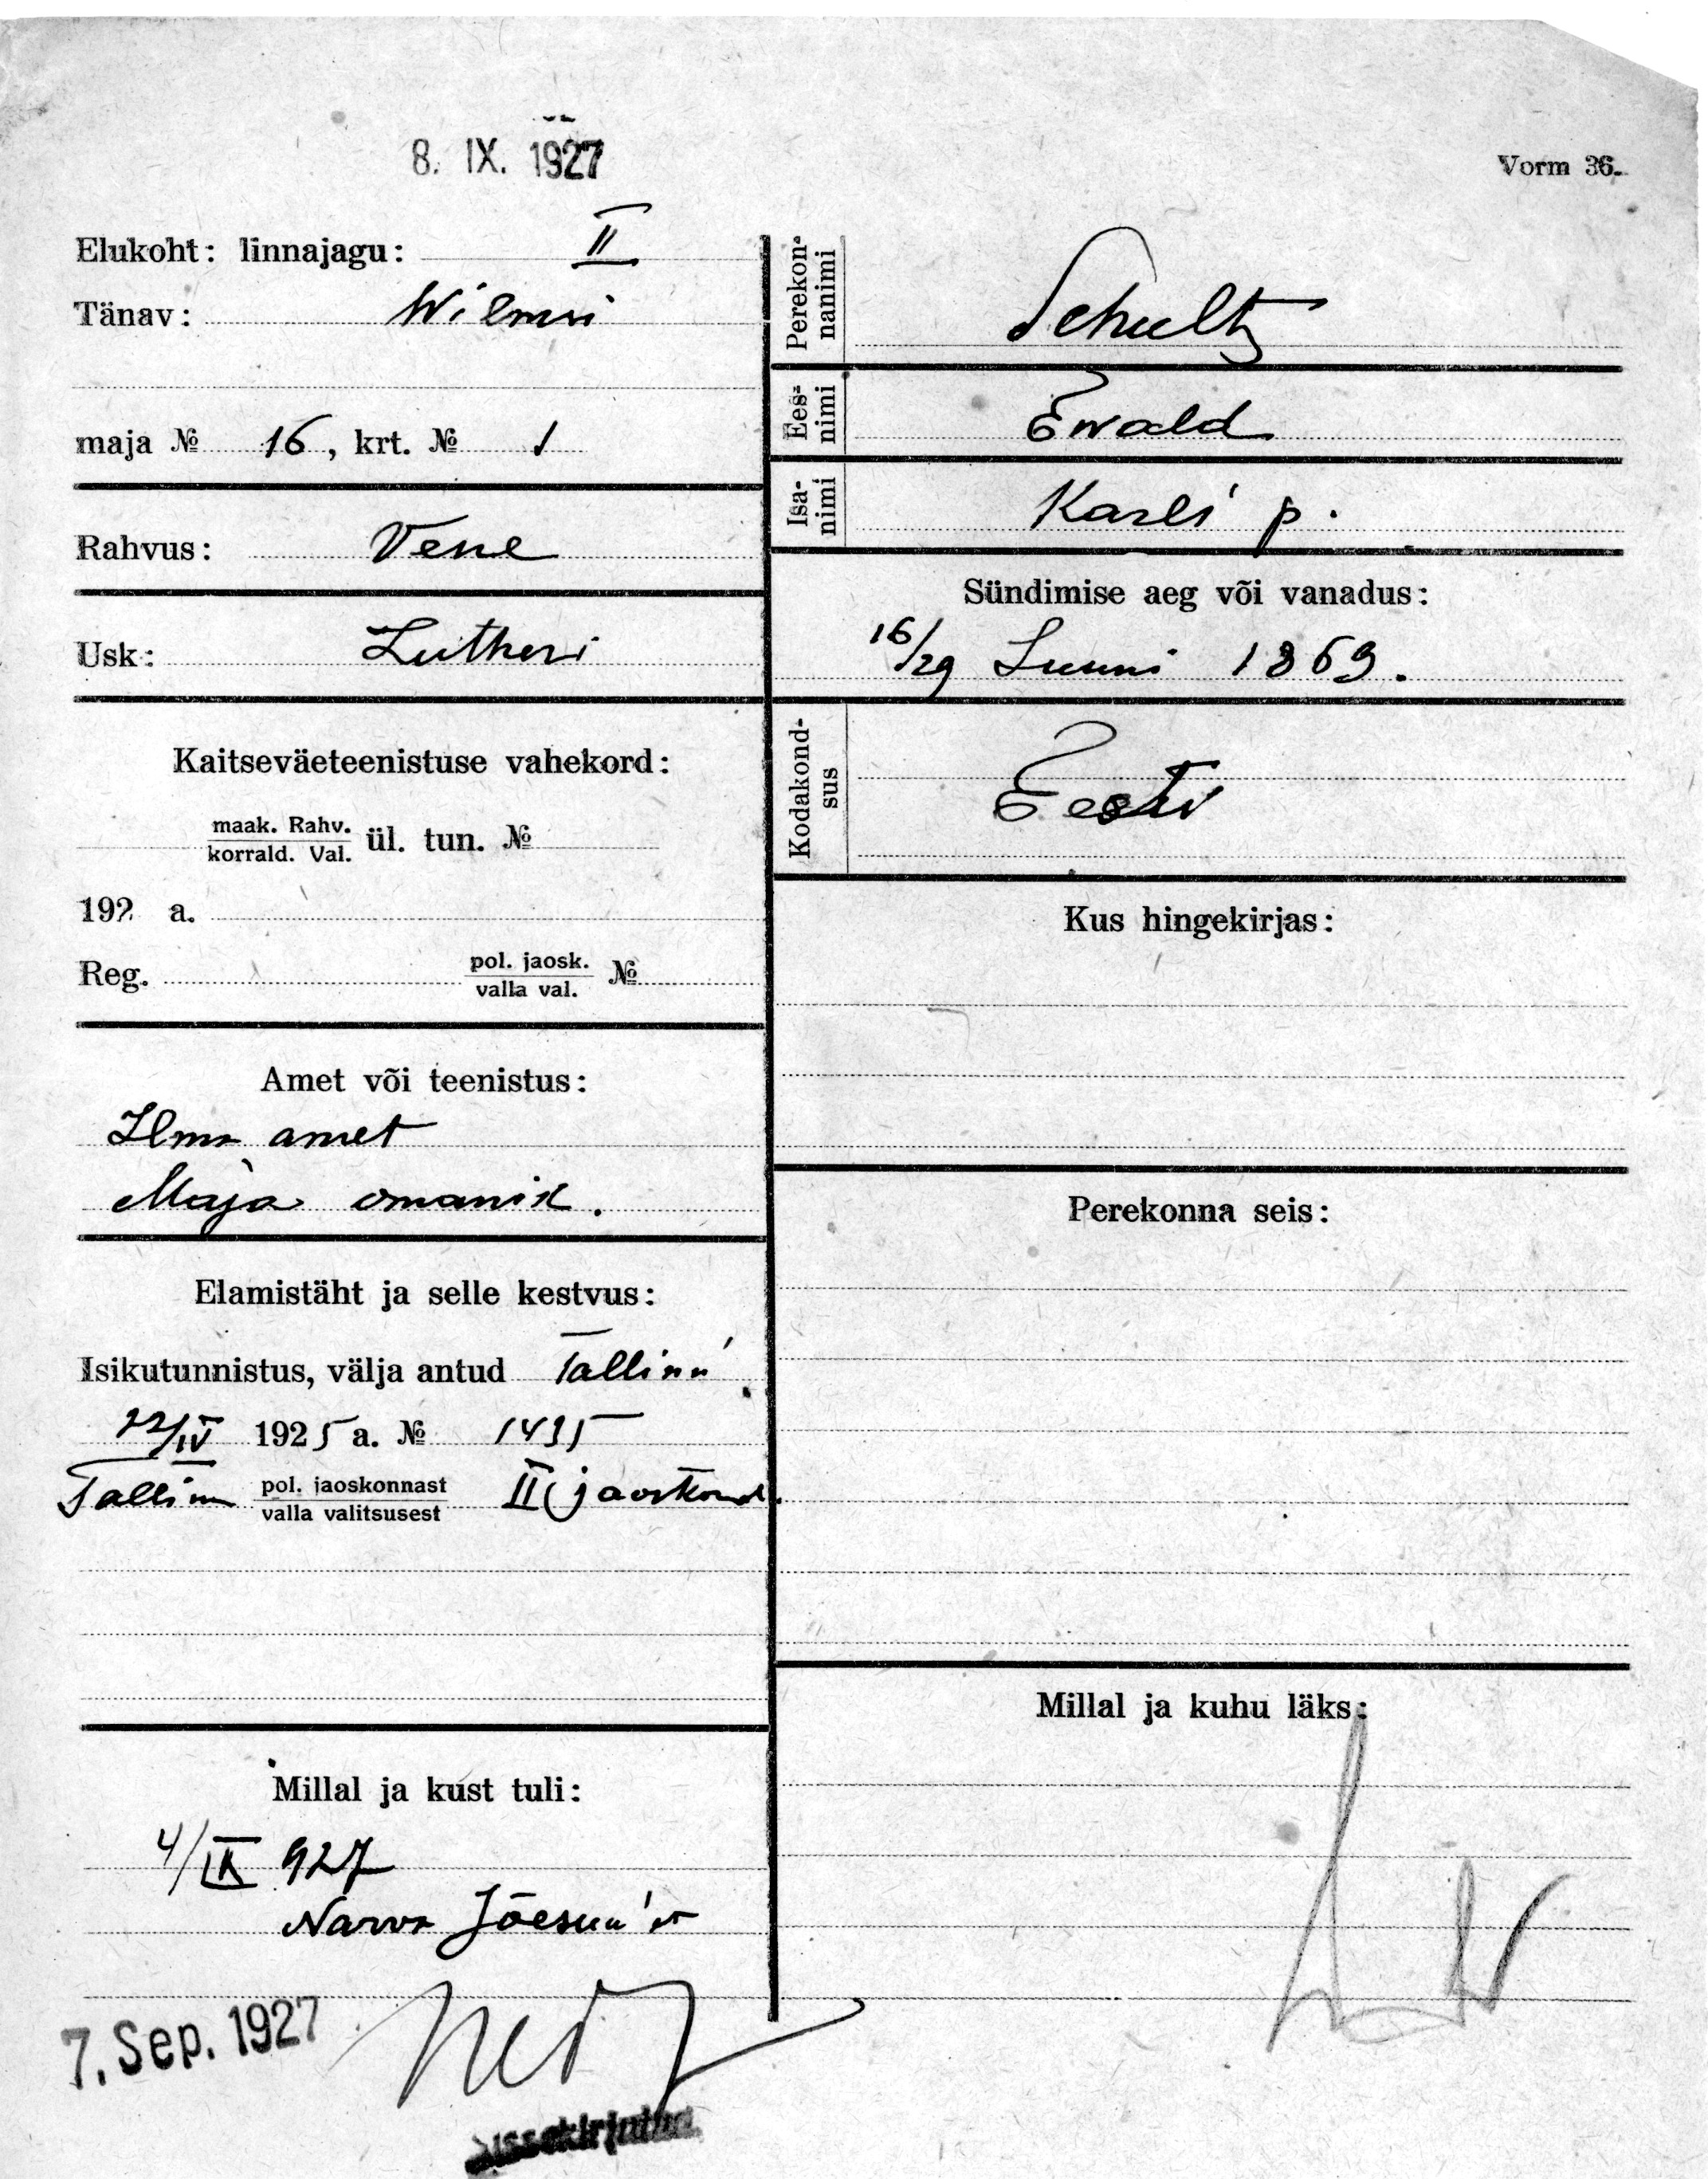 8. IX. 1927
Vorm 36.
Elukoht: linnajagu: II
Tänav: Wilmsi
maja № 16, krt. № 1
Rahvus: Vene
Usk: Lutheri
Kaitseväeteenistuse vahekord:
maak. Rahv.
korrald. Val. ül. tun. №
192 a.
Reg. pol. jaosk.
valla val. №
Amet või teenistus:
Ilma amet
Maja omanik.
Elamistäht ja selle kestvus:
Isikutunnistus, välja antud Tallinn
22/IV 1925 a. № 1495
Tallinn pol. jaoskonnast II jaoskond.
valla valitsusest
Millal ja kust tuli:
4/IX 927
Narva Jõesuu'st
7. Sep. 1927
Sissekirjutud
Perekon-
nanimi
Schultz
Ees-
nimi
Ewald
Isa-
nimi
Karli p.
Sündimise aeg või vanadus:
16/29 Juuni 1869.
Kodakond-
sus
Eesti
Kus hingekirjas:
Perekonna seis:
Millal ja kuhu läks: